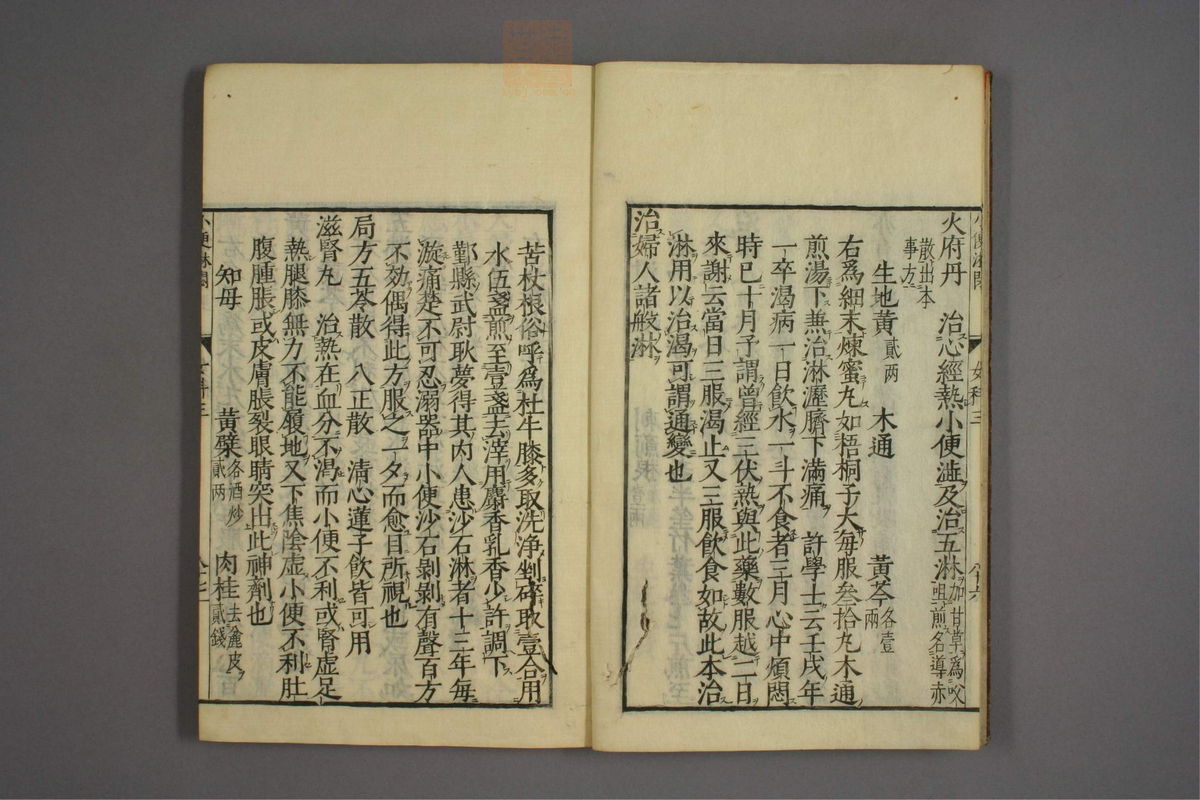 火府丹　治心經熱小便澁及治五淋加甘草爲㕮咀煎名導赤
散出本事方
生地黃貳两　木通　黃芩各壹兩
右爲細末煉蜜丸如梧桐子大每服叁拾丸木通
煎湯下兼治淋瀝臍下滿痛　許學士云壬戌年
一卒渴病一日飮水一斗不食者三月心中煩悶
時已十月予謂曾經三伏熱與此藥數服越二日
來謝云當日三服渴止又三服飮食如故此本治
淋用以治渴可謂通變也
治婦人諸般淋
苦杖根俗呼爲杜牛膝多取洗淨剉碎取壹合用
水伍盞煎至壹盞去滓用麝香乳香少許調下
鄞縣武尉耿夢得其内人患沙石淋者十三年每
漩痛楚不可忍溺器中小便沙石剝剝有聲百方
不効偶得此方服之一夕而愈目所視也
局方五苓散　八正散　清心蓮子飮皆可用
滋腎丸　治熱在血分不渴而小便不利或腎虚足
熱腿膝無力不能履地又下焦陰虚小便不利肚
腹腫脹或皮膚脹裂眼睛突出此神劑也
知母　黃蘗各酒炒貳两　肉桂去麁皮貳錢